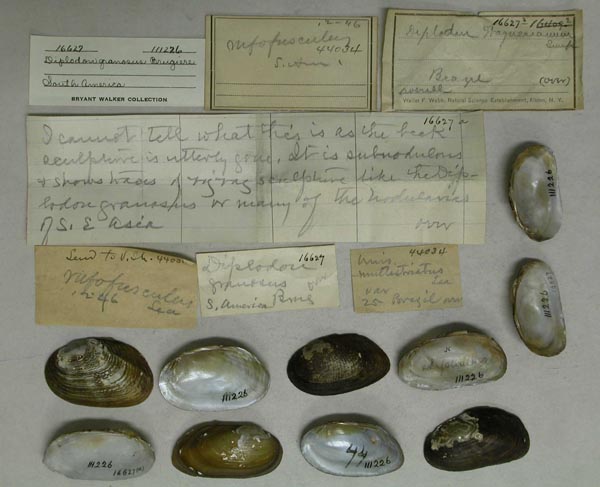 16627 111226
Diplodon granosus Brugiere
South America
BRYANT WALKER COLLECTION
12-46
rufofuscus
44034
S. Am
16627a
Diplodon
Brazil
(over)
Walter F. Webb, Natural Science Establishment,
16627a
I cannot tell what this is as the beak
sculpture is utterly gone. It is subnodulous
& shows traces of zigzag sculpture like the Dip-
lodon granosus or many of the Nodularias
of S. E Asia
over
Send to
rufofuscus
12-46 Lea
16627
Diplodon
granosus
S. America Brug
44034
Unio
multistriatus
Lea
var
Brazil
111226
111226
111226
111226
111226
16627(a)
44
111226